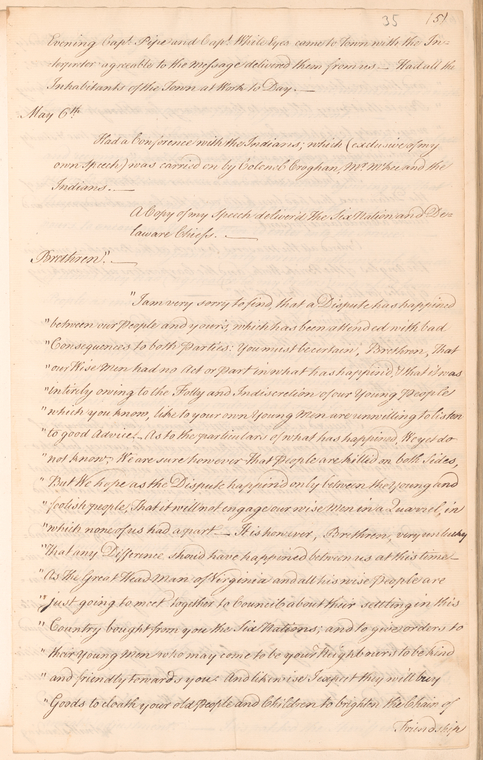 35 151
Evening Capt. Pipe and Capt. White Eyes came to Town with the In-
terpreter agreeable to the Message delivered them from us — Had all the
Inhabitants of the Town at Work to Day. —
May 6th
Had a Conference with the Indians; which (exclusive of my
own Speech) was carried on by Colonel Croghan, Mr. McKee and the
Indians. —
A Copy of my Speech deliver'd the Six Nation and De-
laware Chiefs. —
Brethren". —
"I am very sorry to find, that a Dispute has happined
"between our People and yours, which has been attended with bad
"Consequences to both Parties: You must be certain, Brethren, That
"our Wise Men had no Act or part in what has happind, & that it was
"intirely owing to the Folly and Indiscretion of our Young People
"which you know, like to your own Young Men are unwilling to listen
"to good Advice. As to the particulars of what has happined, We yet do
"not know; We are sure however That People are killed on both Sides,
"But We hope as the Dispute happined only between the Young and
"foolish people, That it will not engage our wise Men in a Quarrel, in
"which none of us had a part — It is however, Brethren, very unlucky
"That any Difference should have happined between us at this time —
"As the Great Head Man of Virginia and all his wise People are
"just going to meet together to Council about their settling in this
"Country bought from you the Six Nations; and to give orders to
"their Young Men who may come to be your Neighbours to be kind
"and friendly towards you: And likewise I expect they will buy
"Goods to cloath your old People and Children to brighten the Chain of
Friendship